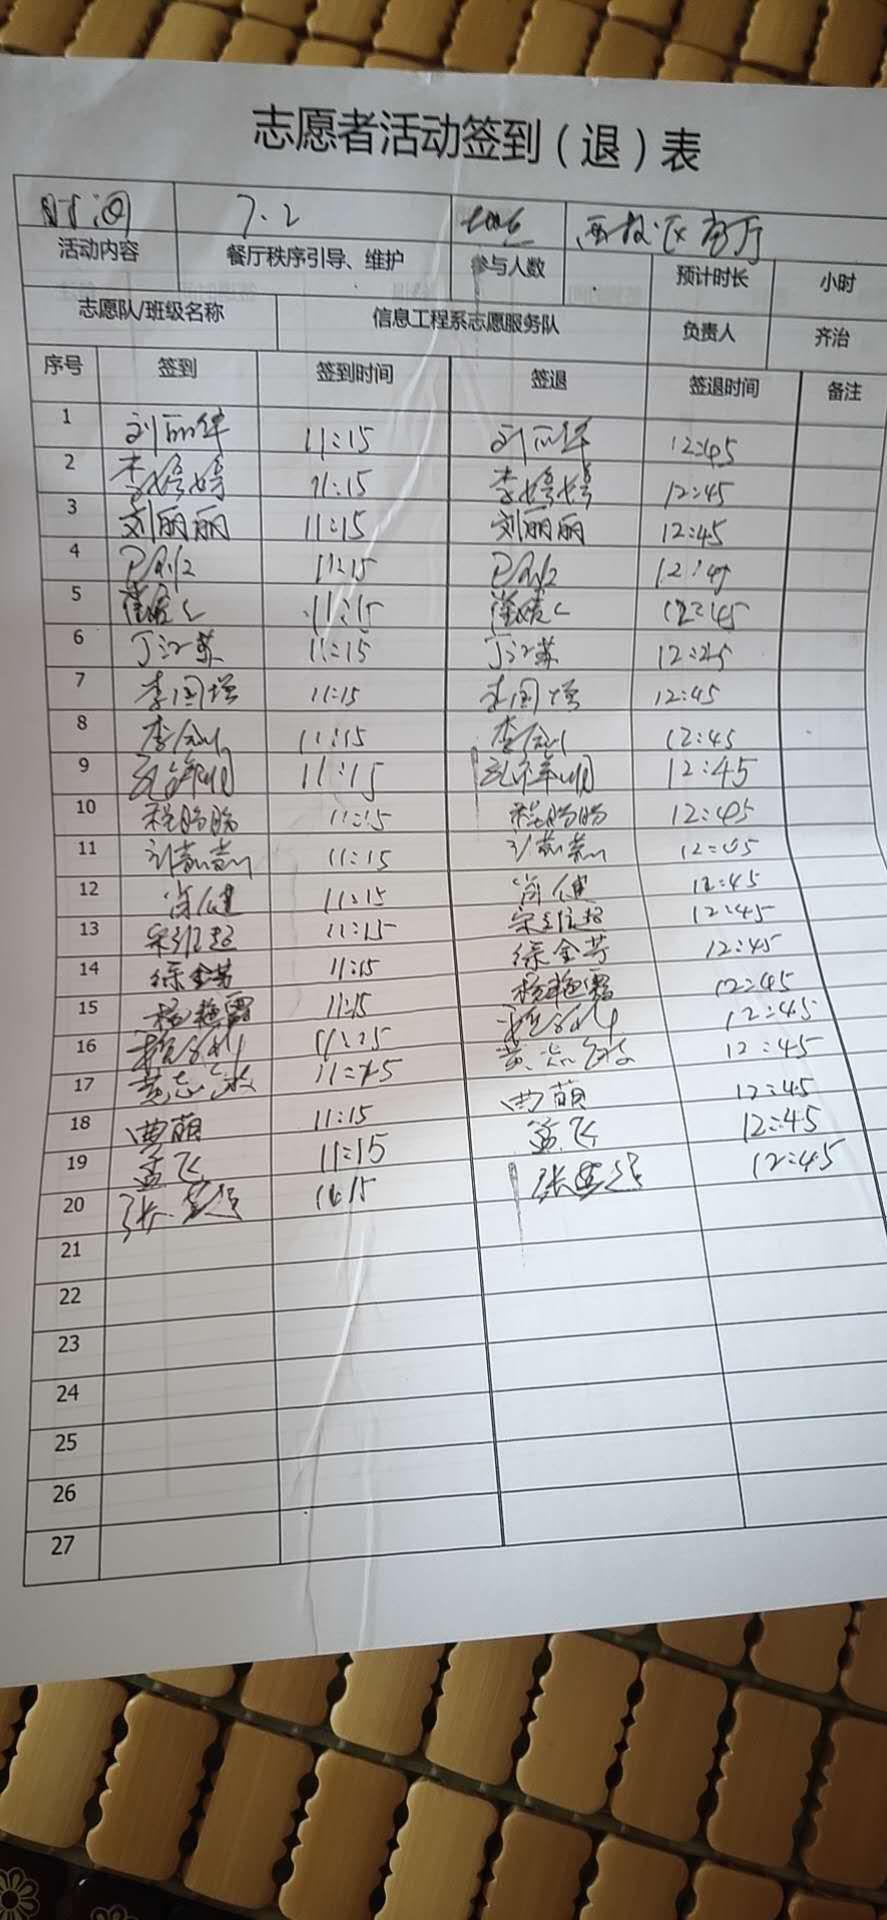 志愿者活动签到（退）表
时间 7.2 西校区餐厅
活动内容 餐厅秩序引导、维护 参与人数 预计时长 小时
志愿队/班级名称 信息工程系志愿服务队 负责人 齐治
序号 签到 签到时间 签退 签退时间 备注
1 刘丽华 11:15 刘丽华 12:45
2 李婷婷 11:15 李婷婷 12:45
3 刘丽丽 11:15 刘丽丽 12:45
4 11:15
5 11:15 12:45
6 丁江苏 11:15 丁江苏 12:45
7 李国增 11:15 李国增 12:45
8 11:15 12:45
9 11:15 12:45
10 程盼盼 11:15 程盼盼 12:45
11 11:15 12:45
12 肖健 11:15 肖健 12:45
13 宋维超 11:15 宋维超 12:45
14 徐金芳 11:15 徐金芳 12:45
15 杨艳霞 11:15 杨艳霞 12:45
16 11:15 12:45
17 11:15 12:45
18 曹萌 11:15 曹萌 12:45
19 孟飞 11:15 孟飞 12:45
20 11:15 12:45
21
22
23
24
25
26
27